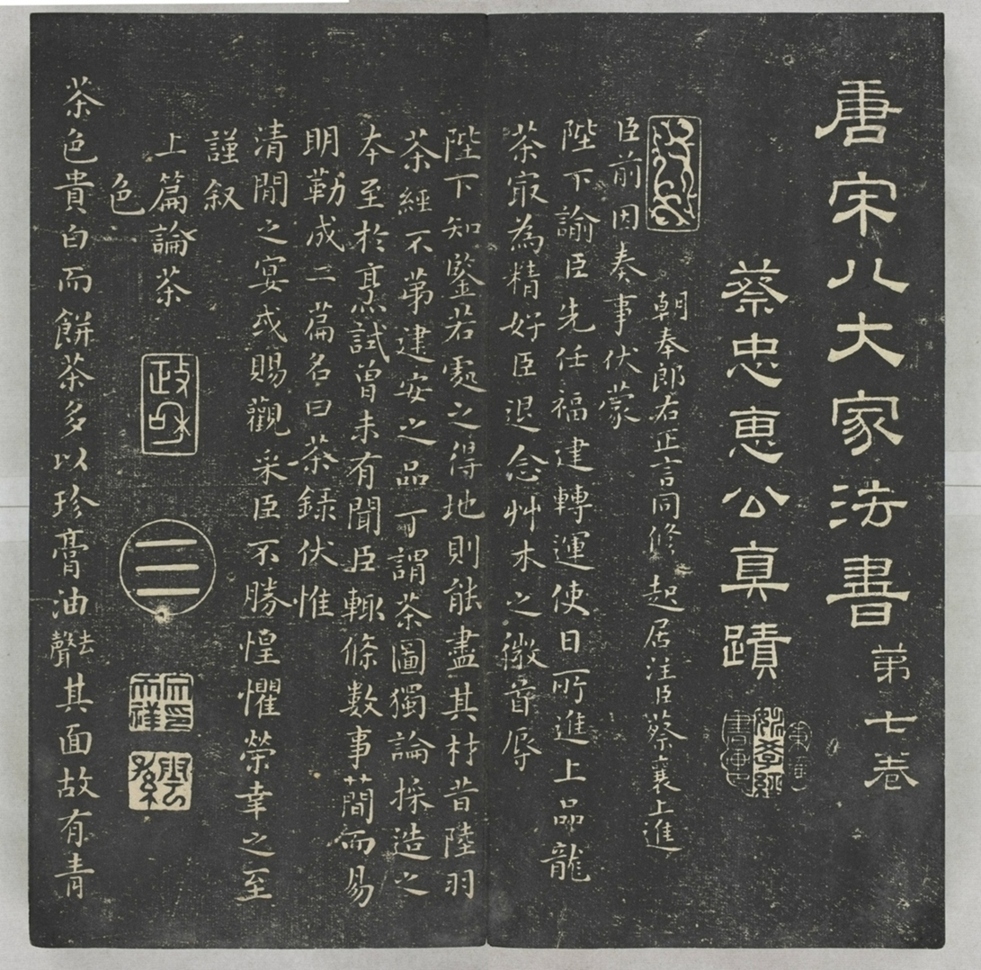 唐宋八大家法書 第七卷
蔡忠惠公真蹟
朝奉郎右正言同修起居注臣蔡襄上進
臣前因奏事伏蒙
陛下諭臣先任福建轉運使日所進上品龍
茶㝡為精好臣退念艸木之微首辱
陛下知鑒若處之得地則能盡其材昔陸羽
茶經不第建安之品丁謂茶圖獨論採造之
本至於烹試曾未有聞臣輙條數事蕳而易
明勒成二萹名曰茶録伏惟
清閒之宴或賜觀采臣不勝惶懼榮幸之至
謹叙
上篇論茶
色
茶色貴白而餅茶多以珍膏油去聲其面故有青
政和